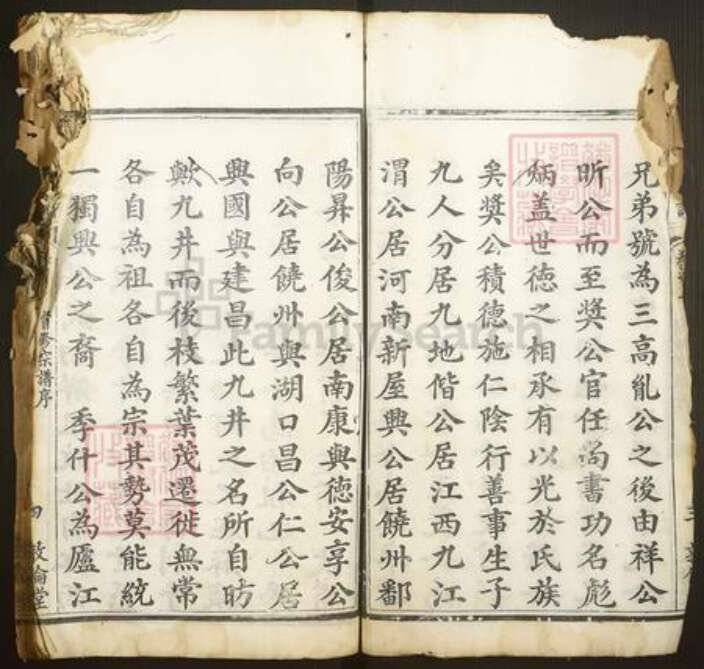 兄弟號為三高胤公之後由祥公
昕公而至獎公官任尚書功名彪
炳蓋世德之相承有以光於氏族
矣獎公積德施仁陰行善事生子
九人分居九地偕公居江西九江
渭公居河南新屋興公居饒州鄱
陽昇公俊公居南康與德安享公
向公居饒州與湖口昌公仁公居
興國與建昌此九井之名所自昉
歟九井而後枝繁葉茂遷徙無常
各自為祖各自為宗其勢莫能統
一獨興公之裔　季什公為廬江
宗譜序
四 敦倫堂
FamilySearch